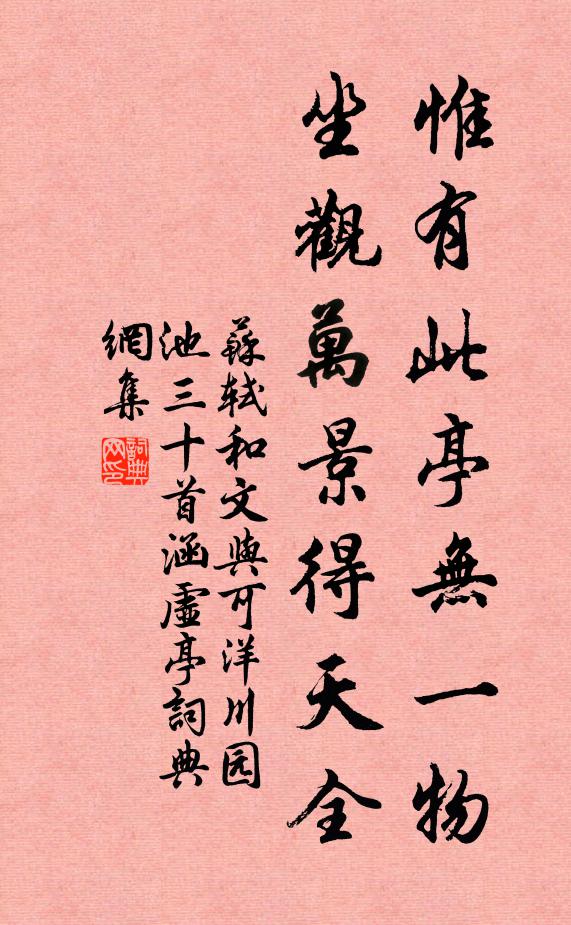 惟有此亭無一物
坐觀萬景得天全
蘇軾和文與可洋川园
池三十首涵虛亭詞典
網集
詞典网印